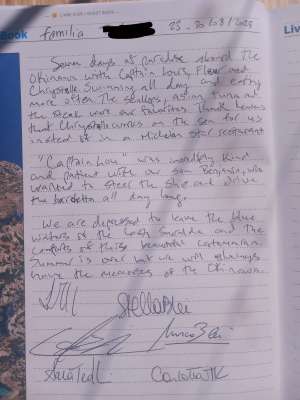 Book
Familia
25 - 30/08/2025
Seven days of paradise aboard the
Okinawa with Captain Louis, Fleur and
Chrystelle. Swimming all day and eating
more often. The scallops, asian tuna and
the steak were our favourites. Thank heavens
that Chrystelle works on the sea for us
instead of in a Michelin star restaurant
"Captain Lou" was incredibly kind
and patient with our son Benjamin, who
wanted to steer the ship and drive
the all day long.
We are depressed to leave the blue
waters of the and the
comforts of this beautiful catamaran.
Summer is over but we will always
have the memories of the Okinawa.
Stella
Marco